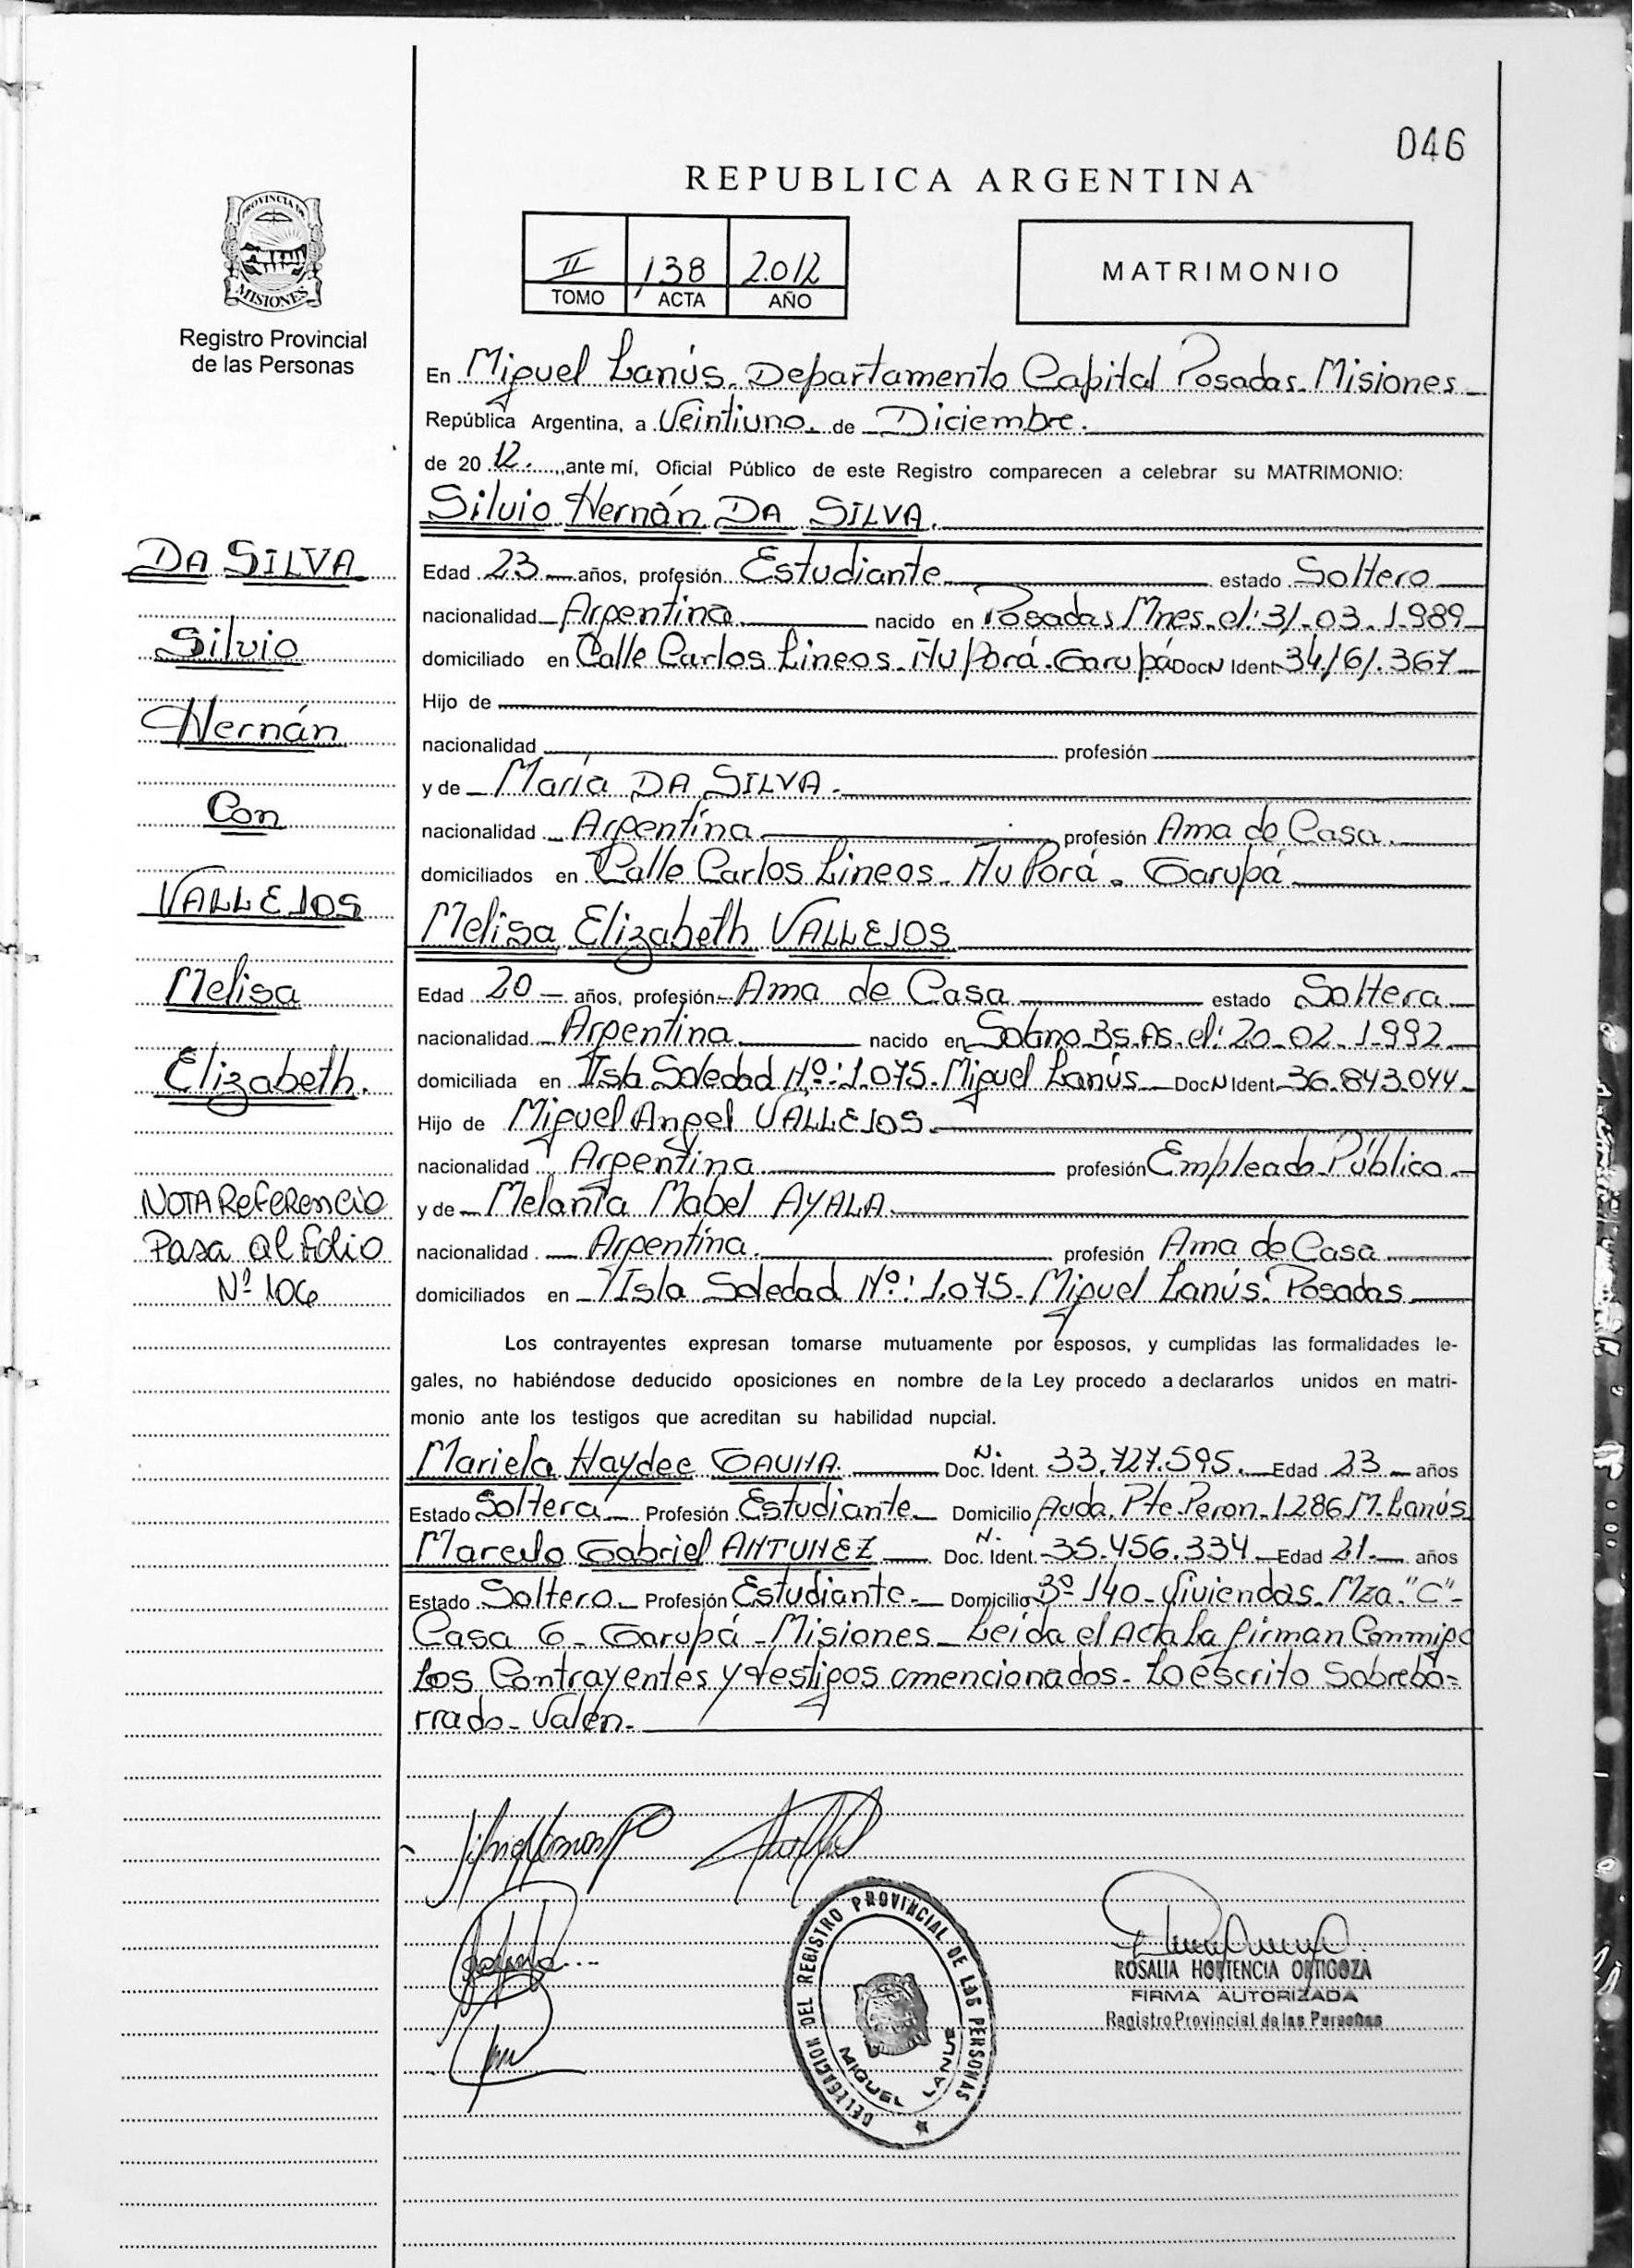 046
REPUBLICA ARGENTINA
PROVINCIA DE
MISIONES
Registro Provincial
de las Personas
II 138 2.012
TOMO ACTA AÑO
MATRIMONIO
En Miguel Lanús. Departamento Capital Posadas. Misiones
República Argentina, a Veintiuno. de Diciembre.
de 20 12. ante mí, Oficial Público de este Registro comparecen a celebrar su MATRIMONIO:
Silvio Hernán DA SILVA.
Edad 23 años, profesión Estudiante estado Soltero
nacionalidad Argentina nacido en Posadas Mnes. el: 31-03-1.989
domiciliado en Calle Carlos Lineos. Ñu Porá. Garupá Doc N Ident 34.161.367
Hijo de
nacionalidad profesión
y de María DA SILVA.
nacionalidad Argentina profesión Ama de Casa.
domiciliados en Calle Carlos Lineos. Ñu Porá. Garupá
Melisa Elizabeth VALLEJOS
Edad 20 años, profesión Ama de Casa estado Soltera
nacionalidad Argentina nacido en Bs. As. el: 20-02-1.992
domiciliada en Isla Soledad Nº: 1.075. Miguel Lanús Doc N Ident 36.843.044
Hijo de Miguel Angel VALLEJOS.
nacionalidad Argentina profesión Empleado Público
y de Melanía Mabel AYALA.
nacionalidad Argentina. profesión Ama de Casa
domiciliados en Isla Soledad Nº: 1.075. Miguel Lanús. Posadas
Los contrayentes expresan tomarse mutuamente por esposos, y cumplidas las formalidades le-
gales, no habiéndose deducido oposiciones en nombre de la Ley procedo a declararlos unidos en matri-
monio ante los testigos que acreditan su habilidad nupcial.
Mariela Haydee GAUNA. Doc. N. Ident. 33.727.595. Edad 23 años
Estado Soltera Profesión Estudiante Domicilio Avda. Pte. Peron. 1.286 M. Lanús
Marcelo Gabriel ANTUNEZ Doc. N. Ident. 35.456.334 Edad 21. años
Estado Soltero Profesión Estudiante Domicilio 3º 140 - Viviendas. Mza. "C"-
Casa 6 - Garupá - Misiones - Leída el Acta la firman Conmigo
Los Contrayentes y testigos mencionados. Lo escrito Sobrebo=
rrado - Valen.
DA SILVA
Silvio
Hernán
Con
VALLEJOS
Melisa
Elizabeth.
NOTA Referencia
Pasa al folio
Nº 106
DELEGACION DEL REGISTRO PROVINCIAL DE LAS PERSONAS
MIGUEL LANUS
ROSALIA HORTENCIA ORTIGOZA
FIRMA AUTORIZADA
Registro Provincial de las Personas